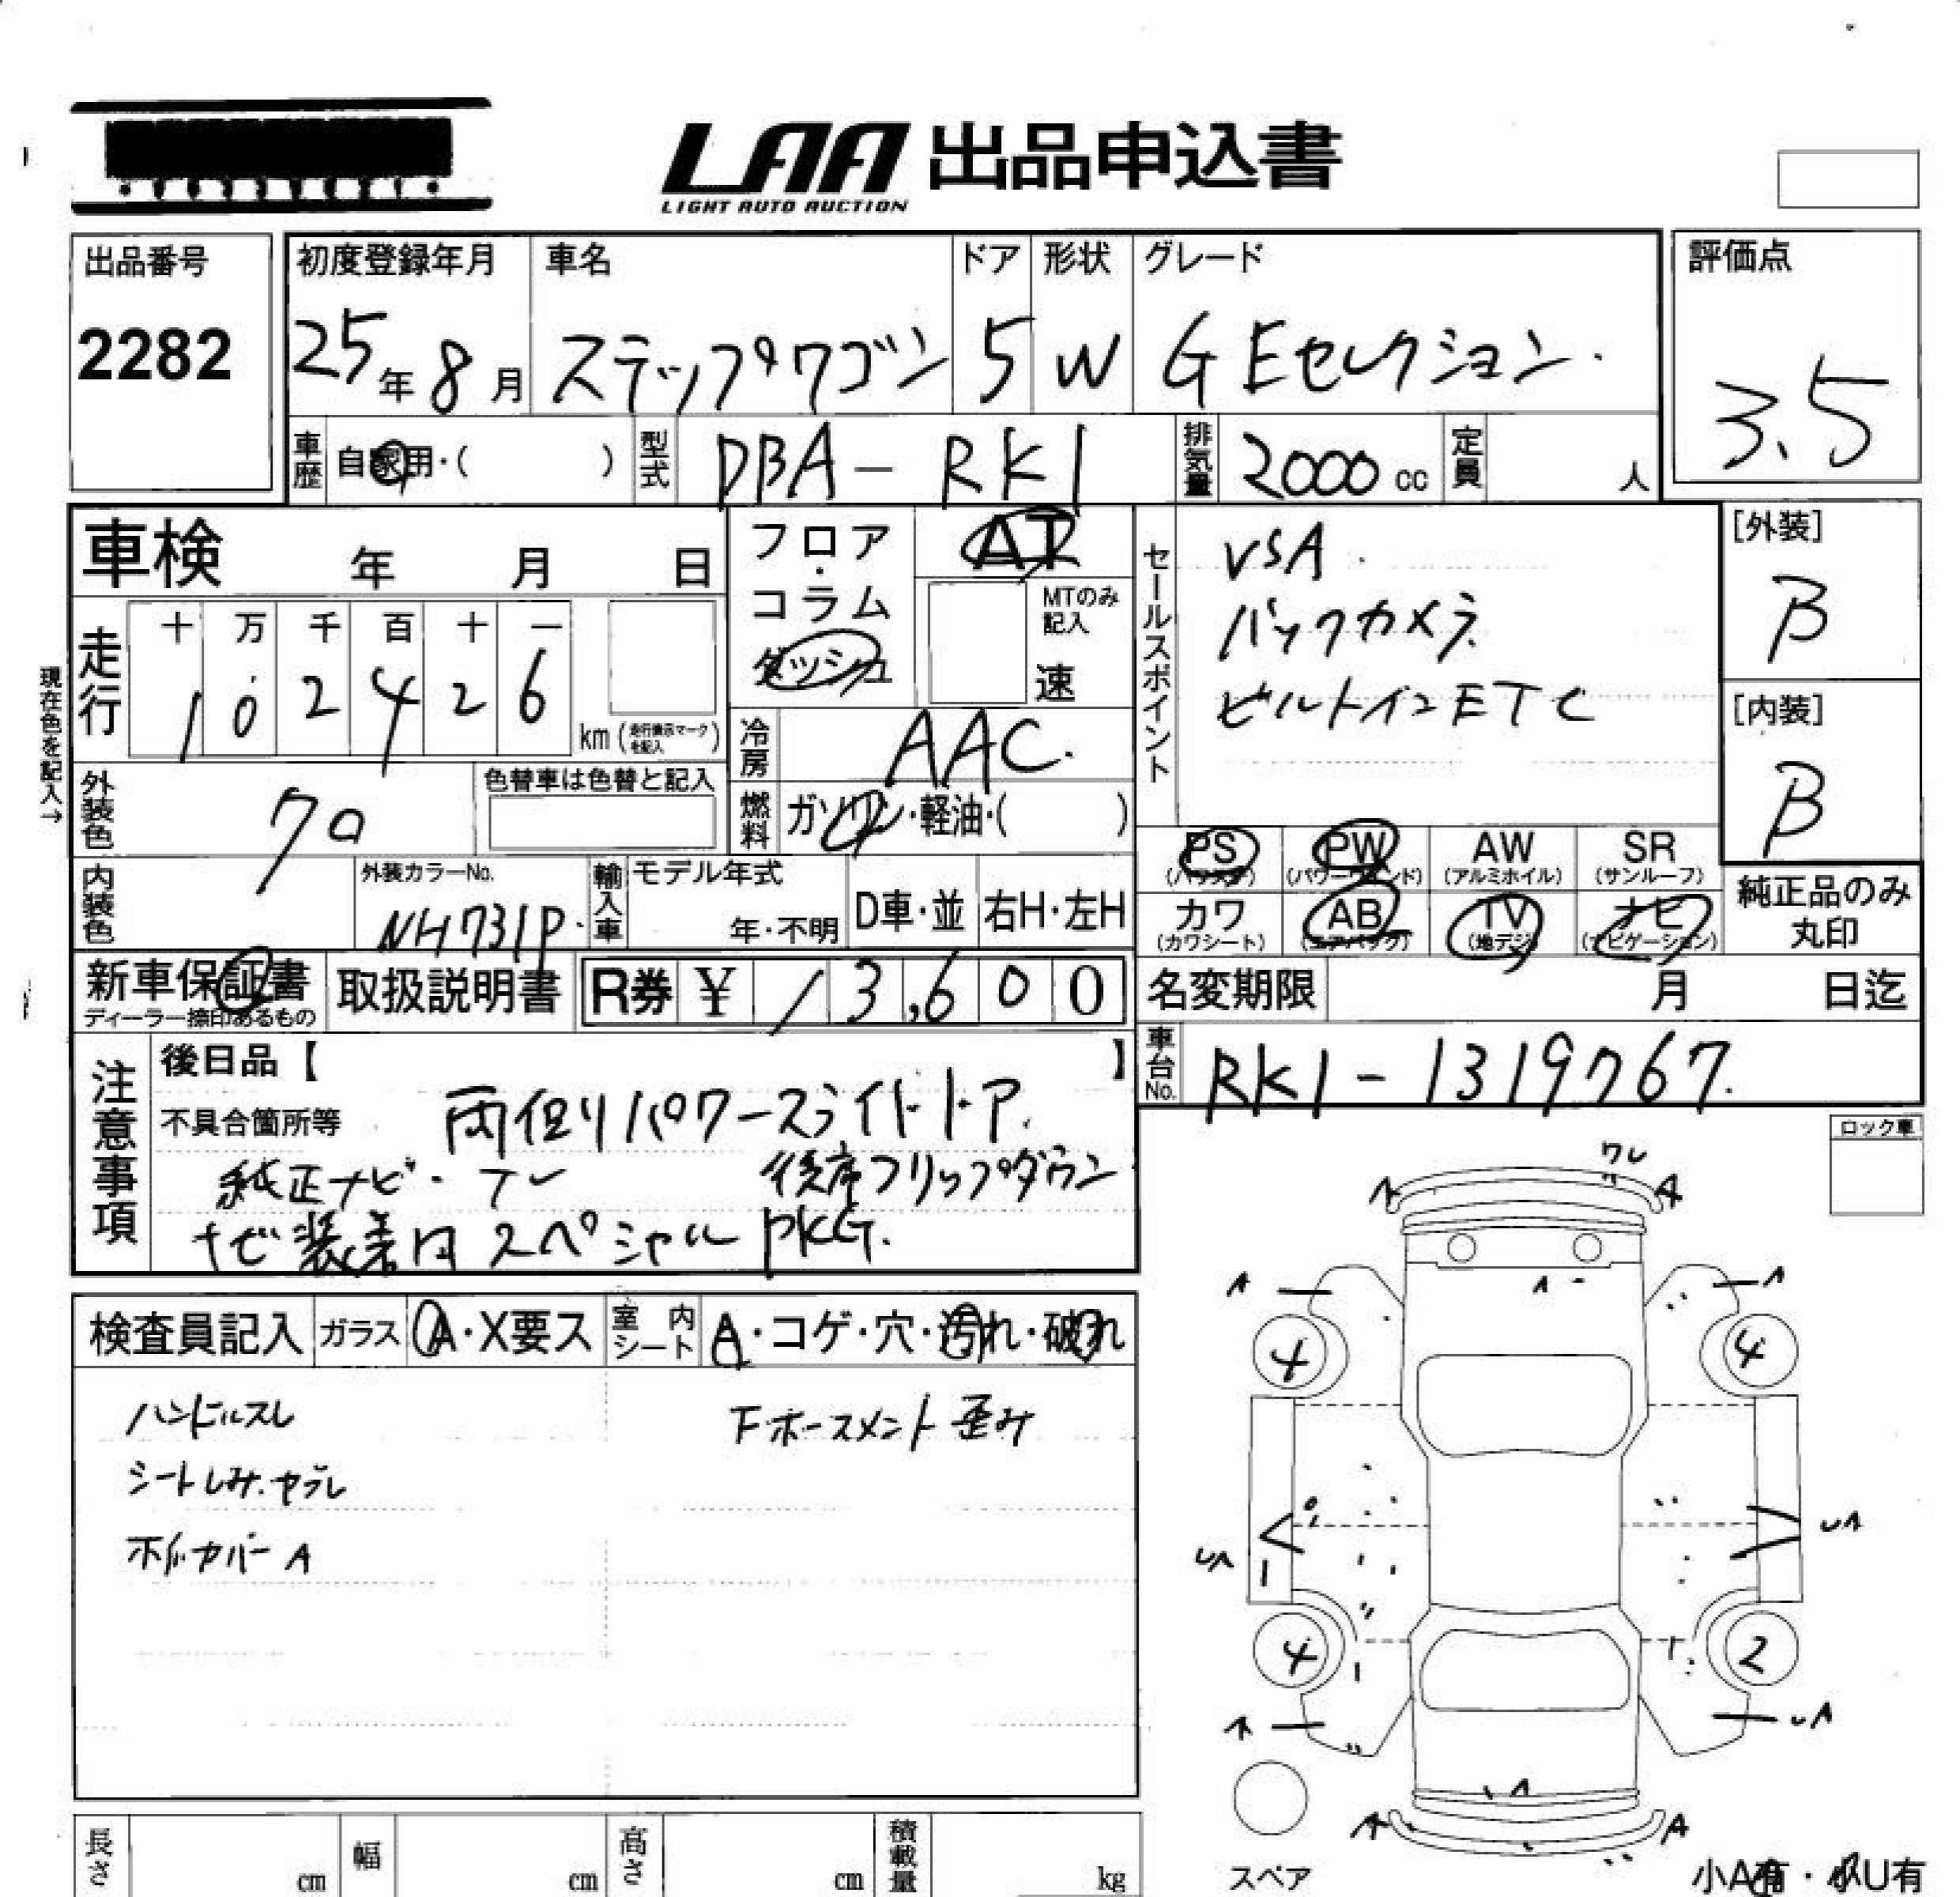 LAA 出品申込書
LIGHT AUTO AUCTION
出品番号 初度登録年月 車名 ドア 形状 グレード 評価点
2282 25年8月 ステップワゴン 5 W G Eセレクション. 3.5
車歴 自家用・( ) 型式 DBA-RK1 排気量 2000cc 定員 人
車検 年 月 日
フロア・コラム ダッシュ
AT
MTのみ記入
速
セールスポイント
VSA.
バックカメラ.
ビルトインETC
[外装]
B
[内装]
B
現在色を記入→
走行 十 万 千 百 十 一
1 0 2 4 2 6 km (走行表示マークを記入)
冷房 AAC.
外装色 クロ 色替車は色替と記入
燃料 ガソリン・軽油・( )
PS (パワステ) PW (パワーウインド) AW (アルミホイル) SR (サンルーフ)
カワ (カワシート) AB (エアバック) TV (地デジ) ナビ (ナビゲーション)
純正品のみ丸印
内装色 外装カラーNo. NH731P. 輸入車 モデル年式 年・不明 D車・並 右H・左H
新車保証書 取扱説明書 R券 ¥ 13,600
ディーラー捺印あるもの
名変期限 月 日迄
車台No. RK1-1319767.
注意事項
後日品【 】
不具合箇所等 両側パワースライドドア.
純正ナビ・TV 後席フリップダウン
ナビ装着用スペシャルPKG.
ロック車
検査員記入 ガラス A・X要ス 室内シート A・コゲ・穴・汚れ・破れ
ハンドルスレ Fホースメント歪み
シートしみ.ヤブレ
ホイルカバーA
ワレ
A A
A A A
4 4
UA UA
4 2
A UA
A
A A
スペア
小A有・小U有
長さ cm 幅 cm 高さ cm 積載量 kg